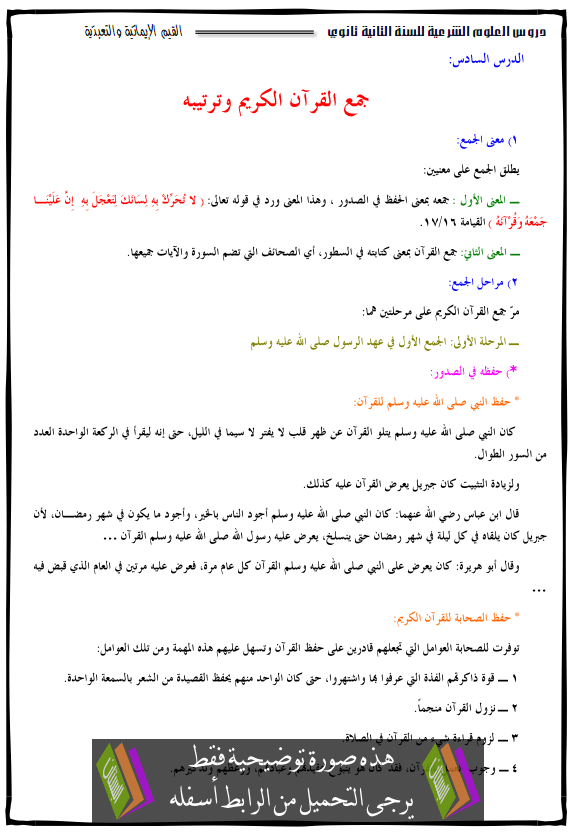 دروس العلوم الشرعية للسنة الثانية ثانوي القيم الإيمانية والتعبدية
الدرس السادس:
جمع القرآن الكريم وترتيبه
١) معنى الجمع:
يطلق الجمع على معنيين:
ــ المعنى الأول : جمعه بمعنى الحفظ في الصدور ، وهذا المعنى ورد في قوله تعالى: ( لا تُحَرِّكْ بِهِ لِسَانَكَ لِتَعْجَلَ بِهِ إِنَّ عَلَيْنَـــا
جَمْعَهُ وَقُرْآنَهُ ) القيامة ١٧/١٦.
ــ المعنى الثاني: جمع القرآن بمعنى كتابته في السطور، أي الصحائف التي تضم السورة والآيات جميعها.
٢) مراحل الجمع:
مرّ جمع القرآن الكريم على مرحلتين هما:
ــ المرحلة الأولى: الجمع الأول في عهد الرسول صلى الله عليه وسلم
*) حفظه في الصدور:
* حفظ النبي صلى الله عليه وسلم للقرآن:
كان النبي صلى الله عليه وسلم يتلو القرآن عن ظهر قلب لا يفتر لا سيما في الليل، حتى إنه ليقرأ في الركعة الواحدة العدد
من السور الطوال.
ولزيادة التثبيت كان جبريل يعرض القرآن عليه كذلك.
قال ابن عباس رضي الله عنهما: كان النبي صلى الله عليه وسلم أجود الناس بالخير، وأجود ما يكون في شهر رمضـــان، لأن
جبريل كان يلقاه في كل ليلة في شهر رمضان حتى ينسلخ، يعرض عليه رسول الله صلى الله عليه وسلم القرآن ...
وقال أبو هريرة: كان يعرض على النبي صلى الله عليه وسلم القرآن كل عام مرة، فعرض عليه مرتين في العام الذي قبض فيه
...
* حفظ الصحابة للقرآن الكريم:
توفرت للصحابة العوامل التي تجعلهم قادرين على حفظ القرآن وتسهل عليهم هذه المهمة ومن تلك العوامل:
١ ــ قوة ذاكرتهم الفذة التي عرفوا بها واشتهروا، حتى كان الواحد منهم يحفظ القصيدة من الشعر بالسمعة الواحدة.
٢ ــ نزول القرآن منجماً.
٣ ــ لزوم قراءة شيء من القرآن في الصلاة.
٤ ــ وجوب
هذه صورة توضيحية فقط
يرجى التحميل من الرابط أسفله